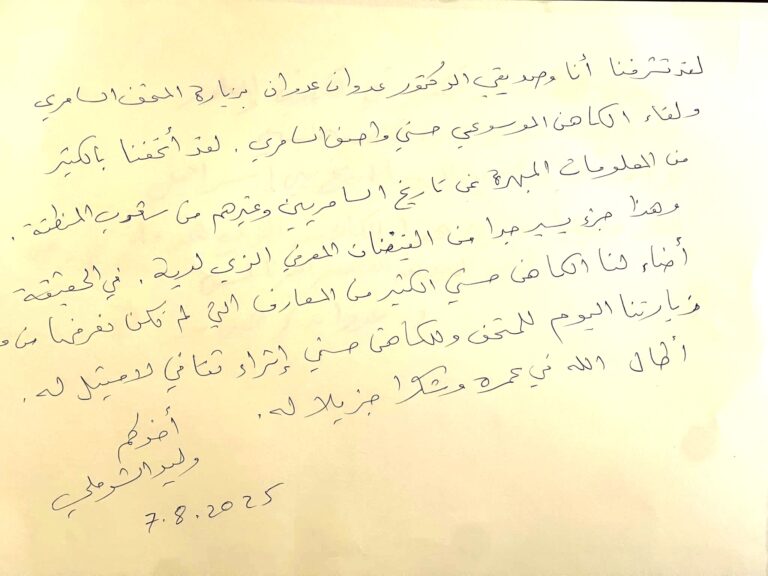 لقد تشرفنا أنا وصديقي الدكتور عدوان عدوان بزيارة المتحف السامري
ولقاء الكاهن الموسوعي حسني واصف السامري. لقد أتحفنا بالكثير
من المعلومات المبهرة عن تاريخ السامريين وغيرهم من شعوب المنطقة.
وهذا جزء يسير جدا من الفيضان المعرفي الذي لديه. في الحقيقة
أضاء لنا الكاهن حسني الكثير من المعارف التي لم نكن نعرفها من
زيارتنا اليوم للمتحف وللكاهن حسني إثراء ثقافي لا مثيل له.
أطال الله في عمره وشكرا جزيلا له.
أخوكم
وليد الشوملي
7.8.2025